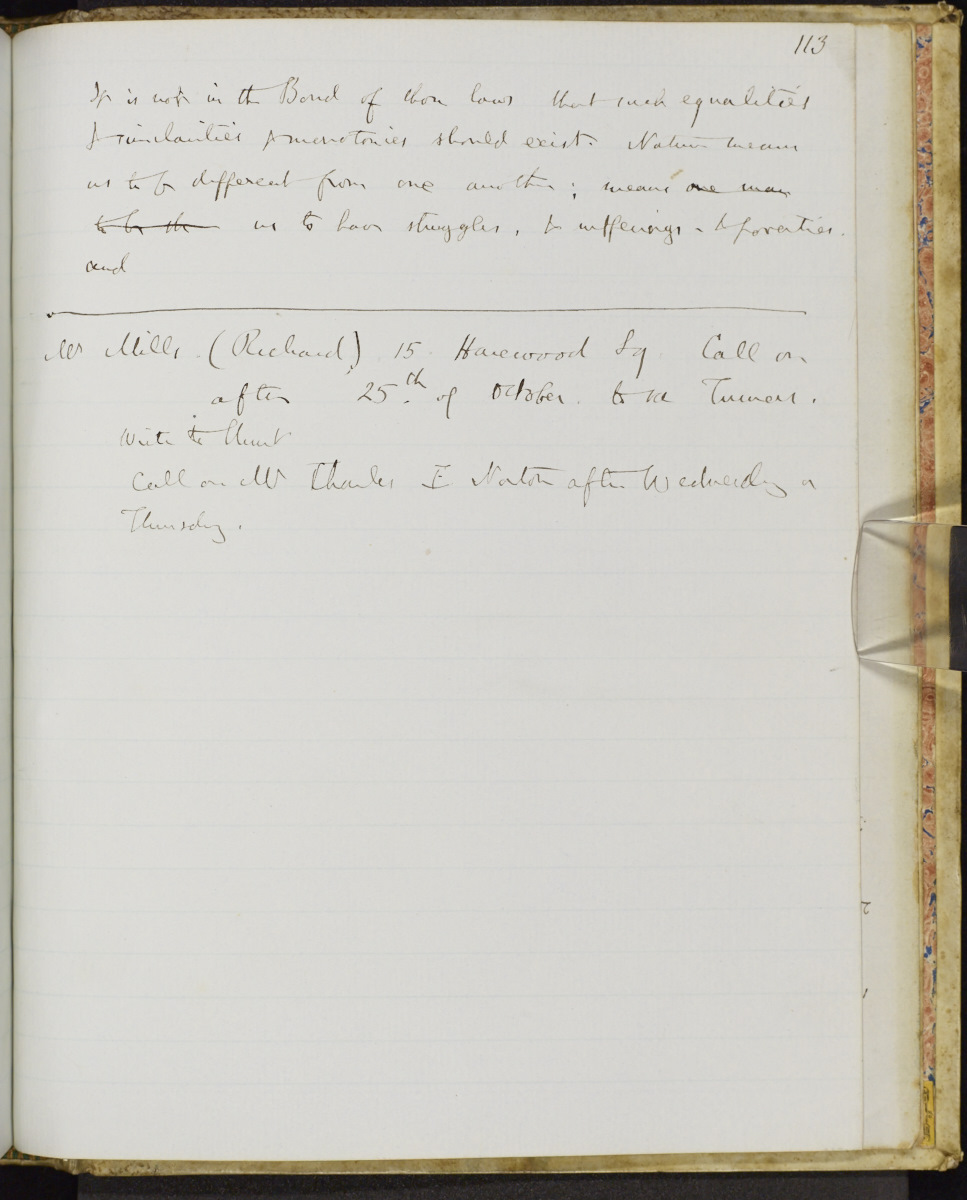 113
It is not in the Bond of those laws that such equalities
& similarities & monotonies should exist. Nature means
us to be different from one another; means one man
to be the us to have struggles, & sufferings &
and
Mr Mills (Richard) 15 Harewood Sq. Call on
after 25th of October. to see Turners.
Write to Hunt
Call on Mr Charles E Norton after Wednesday or
Thursday.